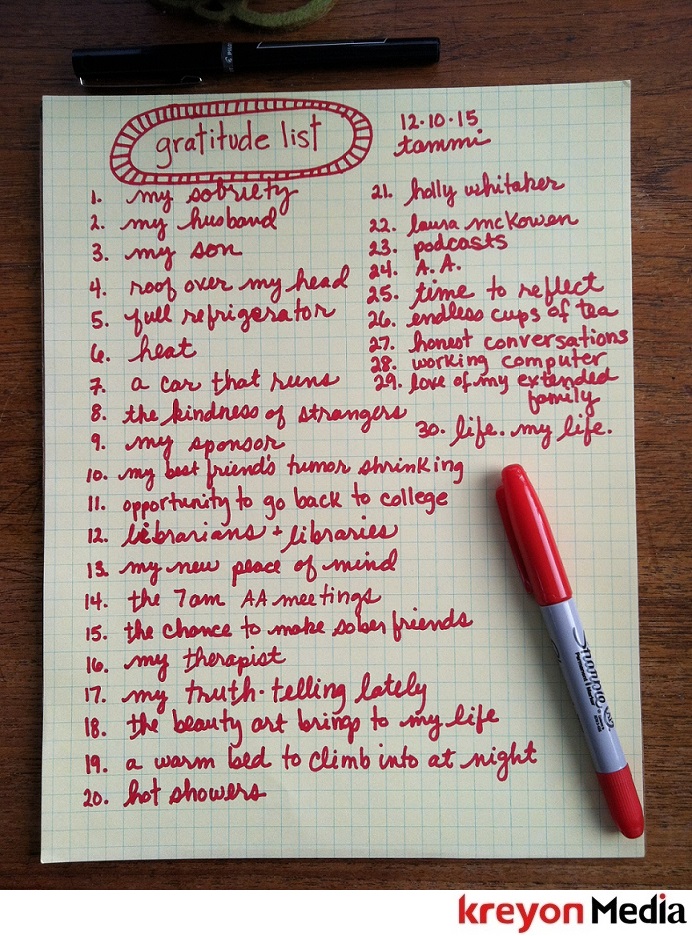 gratitude list
12.10.15
tammi
1. my sobriety
2. my husband
3. my son
4. roof over my head
5. full refrigerator
6. heat
7. a car that runs
8. the kindness of strangers
9. my sponsor
10. my best friend's tumor shrinking
11. opportunity to go back to college
12. librarians + libraries
13. my new peace of mind
14. the 7am AA meetings
15. the chance to make sober friends
16. my therapist
17. my truth-telling lately
18. the beauty art brings to my life
19. a warm bed to climb into at night
20. hot showers
21. holly whitaker
22. laura mcKowen
23. podcasts
24. A.A.
25. time to reflect
26. endless cups of tea
27. honest conversations
28. working computer
29. love of my extended
family
30. life. my life.
Sharpie
kreyon Media